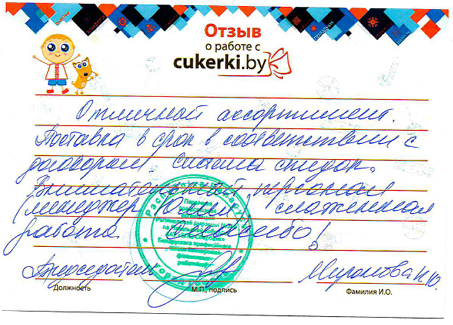 Отзыв
о работе с
cukerki.by
Отличный ассортимент.
Поставка в срок в соответствии с
договором. Система скидок.
Внимательный персонал
(менеджер Юлия). Слаженная
работа. Спасибо!
Должность
М.П., подпись
Фамилия И.О.